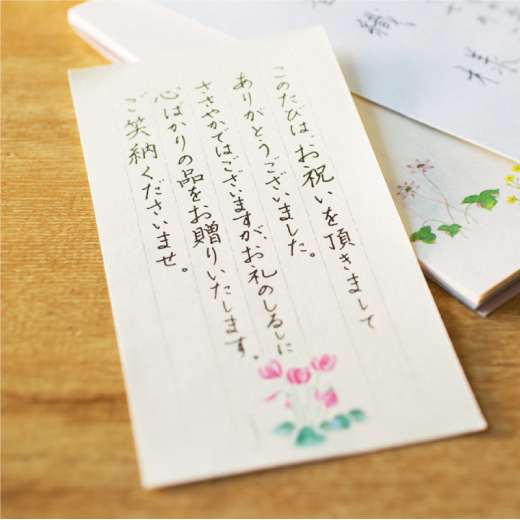 このたびは、お祝いを頂きまして
ありがとうございました。
ささやかではございますが、お礼のしるしに
心ばかりの品をお贈りいたします。
ご笑納くださいませ。
織
様